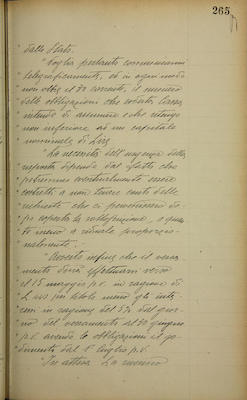 265
" dallo Stato.
" Voglia pertanto comunicarmi
" telegraficamente, ed in ogni modo
" non oltre il 30 corrente, il numero
" delle obbligazioni che codesta Cassa
" intende di assumere e che ritengo
" non inferiore ad un capitale
" nominale di Lire
" La necessità dell'urgenza della
" risposta dipende dal fatto che
" potremmo eventualmente essere
" costretti a non tenere conto delle
" richieste che ci pervenissero do-
" po coperta la sottoscrizione, o quan-
" to meno a ridurle proporzio-
" nalmente.
" Avverto infine che il versa-
" mento dovrà effettuarsi verso
" il 15 maggio p.v. in ragione di
" L. per titolo meno gli inte-
" ressi in ragione del 5% dal gior-
" no del versamento al 30 giugno
" p.v. avendo le obbligazioni il go-
" dimento dal 1° luglio p.v.
" In attesa La